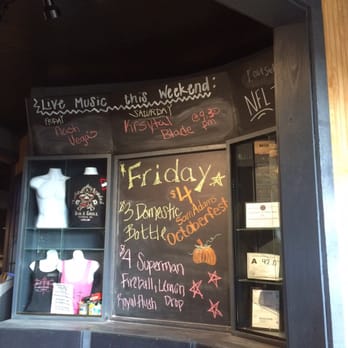 Live Music this Weekend:
FRIDAY
Nash
Vegas
SATURDAY
Krysytal
Blade
@9:30
pm
NFL
Friday
$4
Sam Adams
Octoberfest
$3 Domestic
Bottle
$4 Superman
Fireball, Lemon
Royal Flush Drop
BAR & GRILL
A